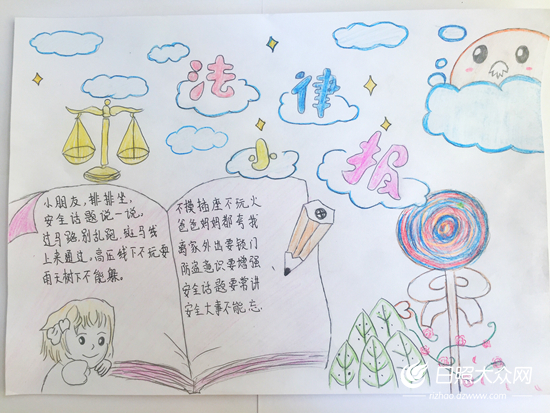 法律
小报
小朋友，排排坐，
安全话题说一说，
过马路，别乱跑，斑马线
上来通过，高压线下不玩耍
雨天树下不能躲。
不摸插座不玩火
爸爸妈妈都夸我
离家外出要锁门
防盗意识要增强
安全话题要常讲
安全大事不能忘.
日照大众网
rizhao.dzwww.com